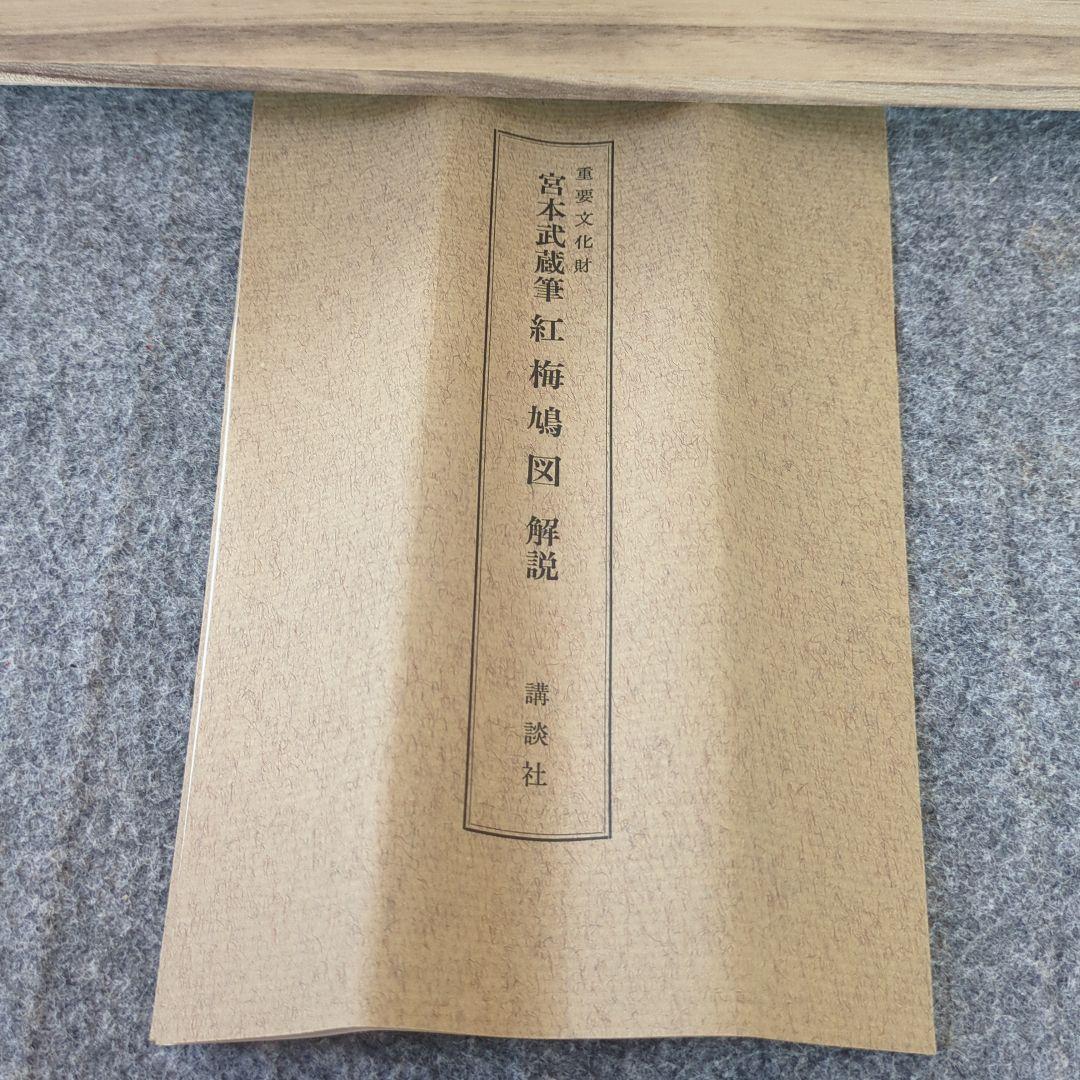 重要文化財
宮本武蔵筆 紅梅鳩図 解説
講談社